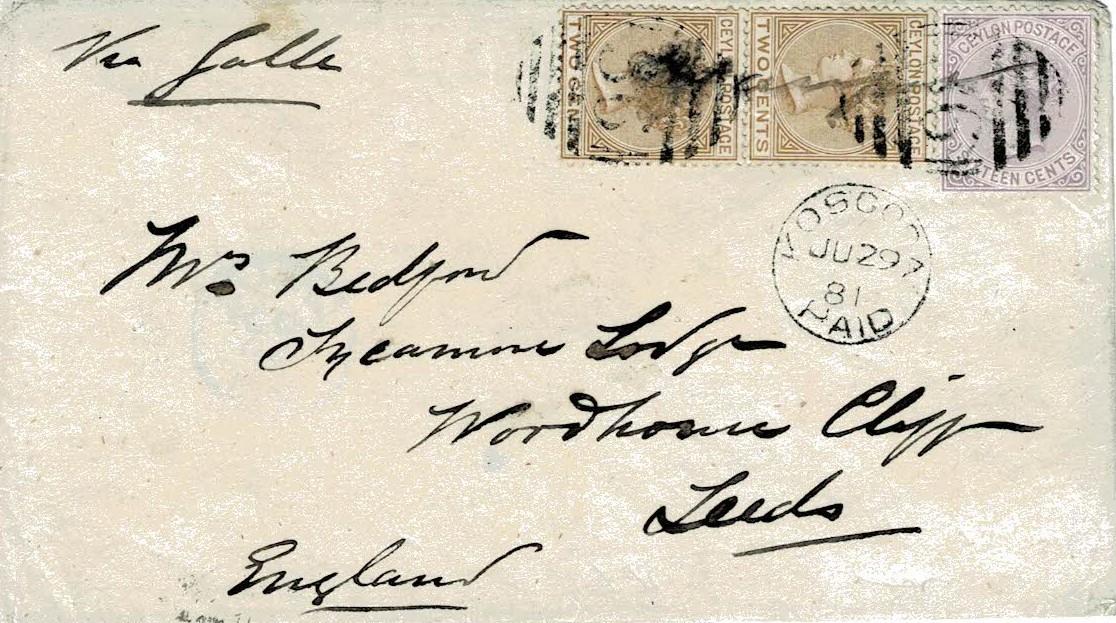 Via Galle
TWO CENTS
CEYLON POSTAGE
TWO CENTS
CEYLON POSTAGE
CEYLON POSTAGE
TEEN CENTS
JU 29
81
PAID
Mrs Bedford
Sycamore Lodge
Woodhouse Cliff
Leeds
England